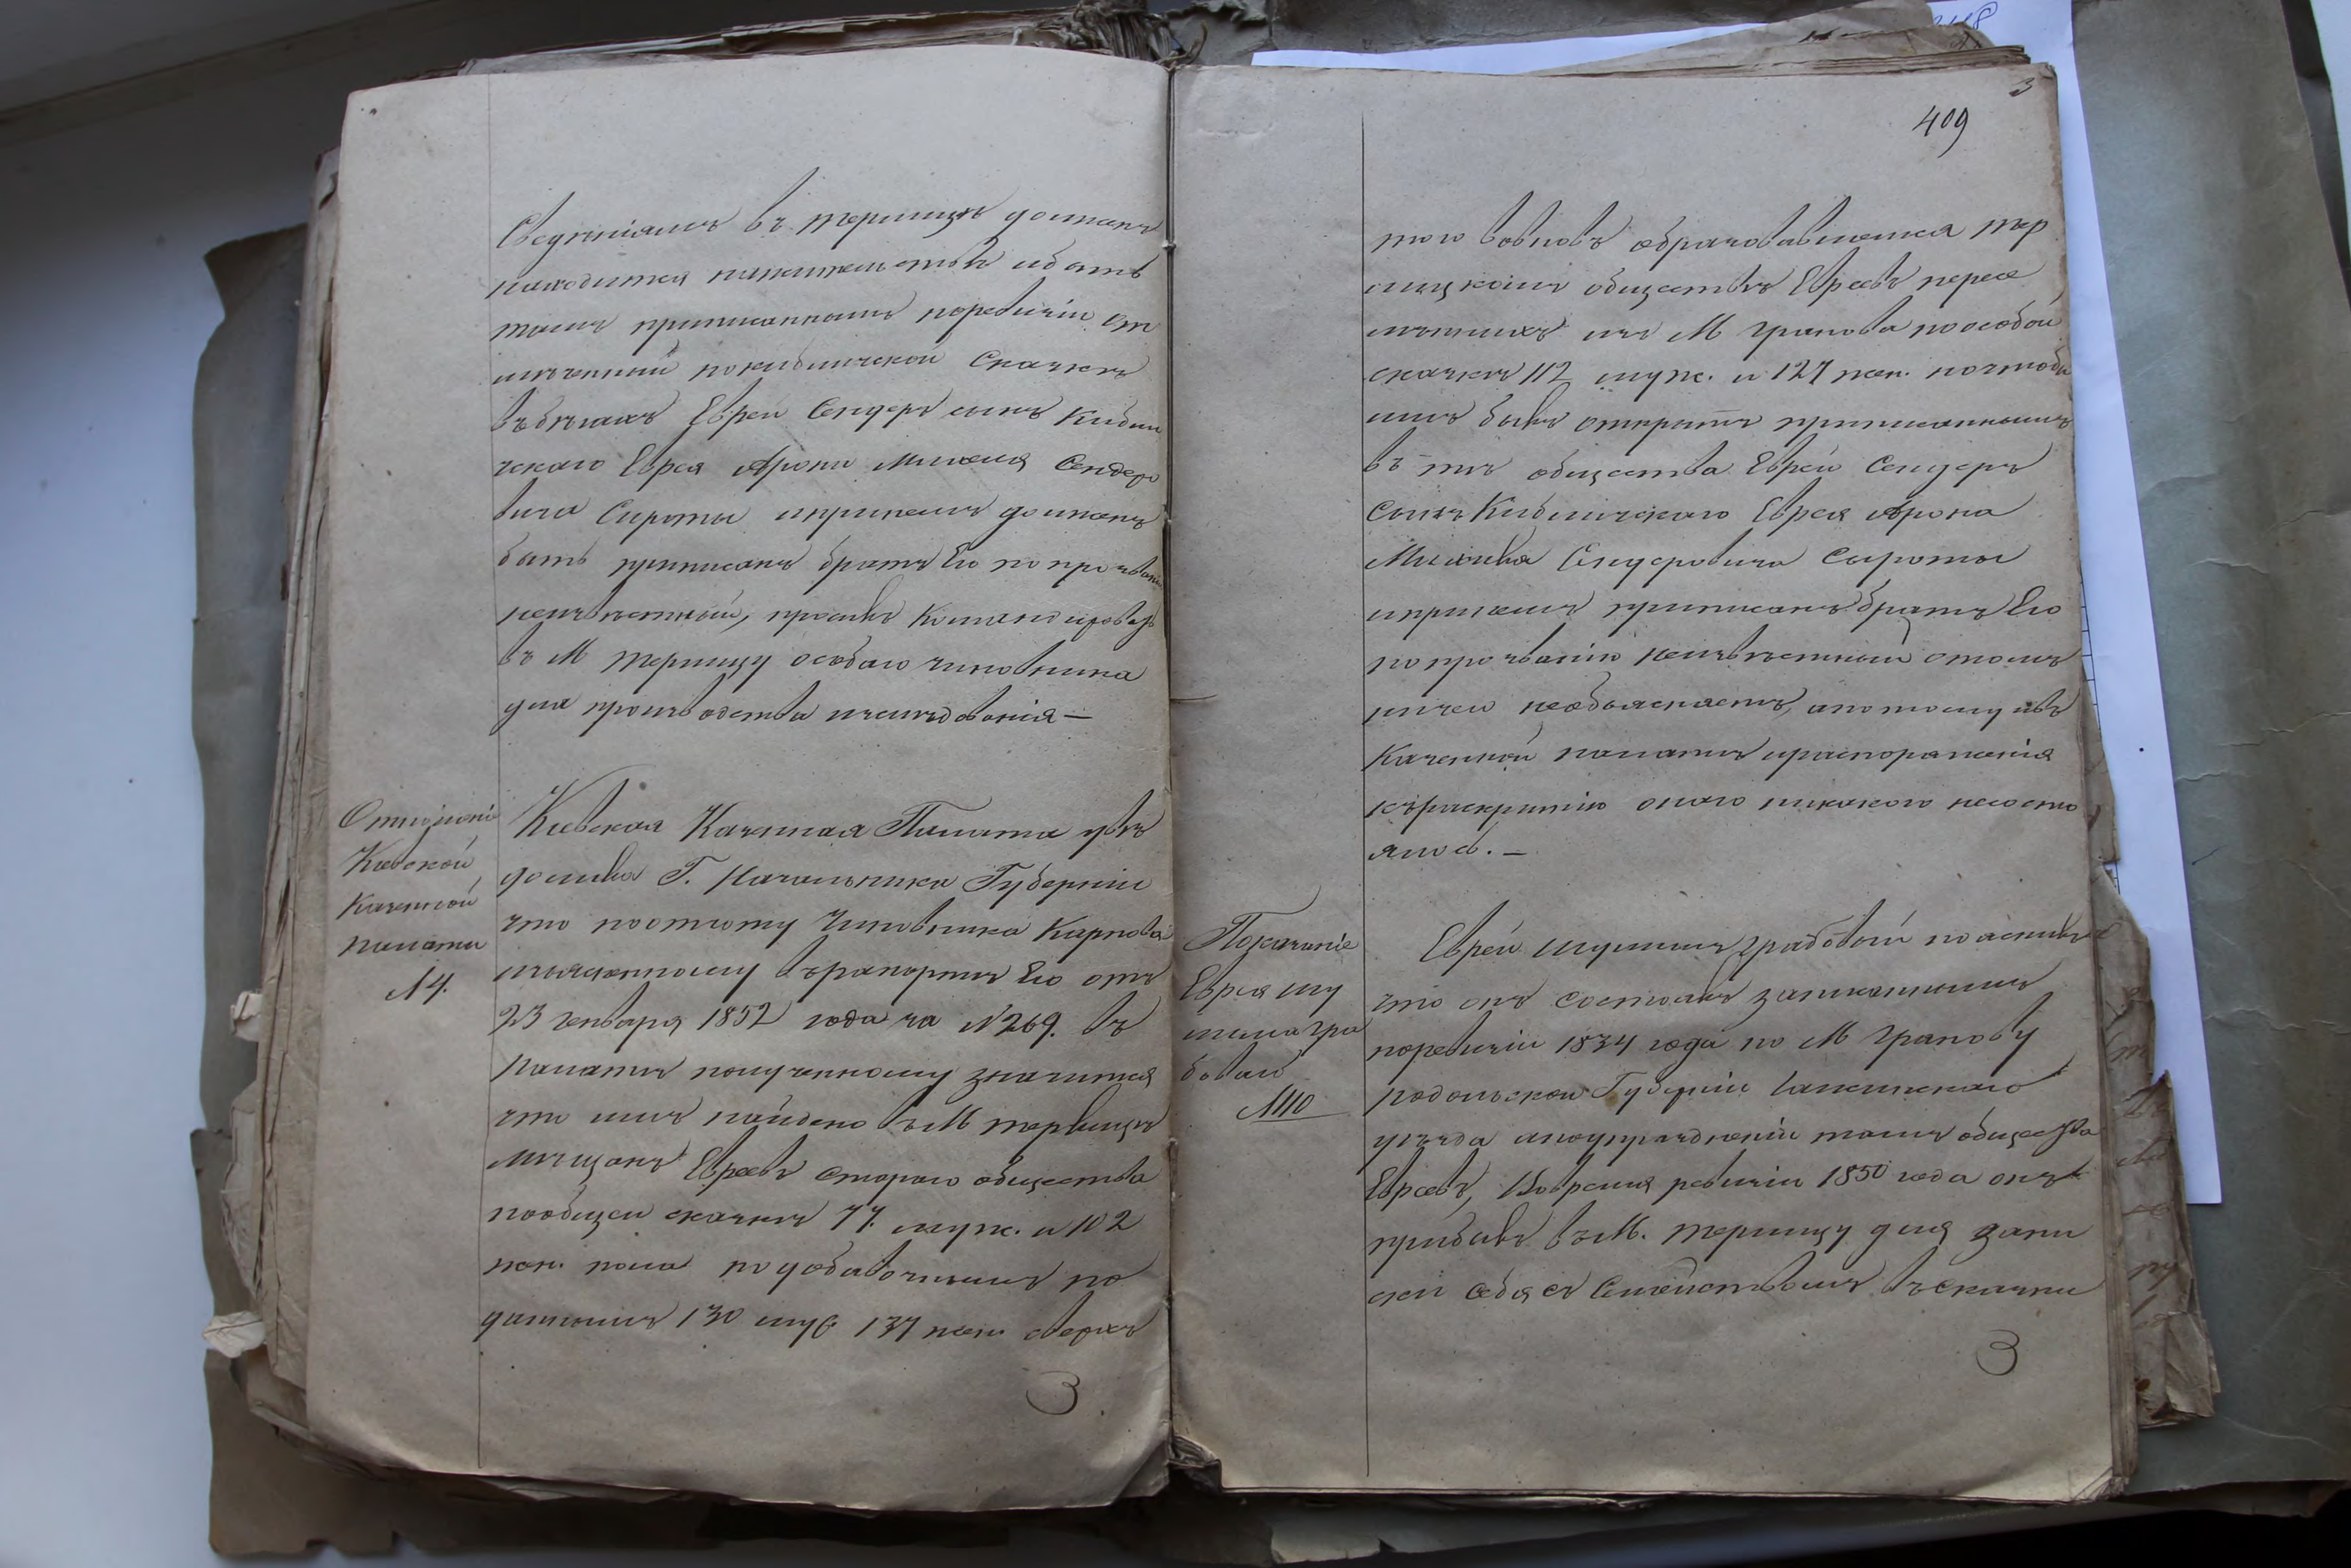 Сведѣніямъ въ Терлицѣ должен
находится на жительствѣ и быть
тамъ приписаннымъ по ревизіи от
меченный по Кибличской Сказкѣ
въ бѣгахъ Еврей Сендеръ сынъ Кибли
чскаго Еврея Арона Михеля Сендеро
вича Сироты и при немъ долженъ
быть приписанъ братъ Его по прозванію
неизвѣстный, просилъ Командировать
въ М Терлицу особаго чиновника
для производства изслѣдованія —
Отношеніе
Кіевской
Казенной
палаты
№ 4.
Кіевская Казенная Палата увѣ
домила Г. Начальника Губерніи
что по отчету Чиновника Карпова
изъясненному въ рапортѣ Его отъ
23 генваря 1852 года за № 269. въ
Палатѣ полученному значится
что имъ найдено въ М Терлицѣ
мѣщанъ Евреевъ стараго общества
по общей сказкѣ 77. муж. и 102
жен. пола по добавочнымъ по
даннымъ 130 муж 137 жен. сверхъ
3
3
409
того вовновь образовавшемся Тер
лицкомъ обществѣ Евреевъ пересе
лѣнныхъ изъ М Гранова по особой
сказкѣ 112 муж. и 127 жен. но чтобы
имъ былъ открытъ приписаннымъ
въ тѣ общества Еврей Сендеръ
Сынъ Кибличскаго Еврея Арона
Михеля Сендеровича Сироты
и при немъ приписанъ братъ Его
по прозванію неизвѣстный о томъ
ничего необъясняетъ, а потому и въ
Казенной палатѣ и распоряженія
къ раскрытію онаго никакого несосто
ялось. —
Показаніе
Еврея Шу
лима Гра
боваго
№ 110
Еврей Шулимъ Грабовый пояснилъ
что онъ состоялъ записаннымъ
по ревизіи 1834 года по М Гранову
Подольской Губерніи Гайсинскаго
уѣзда а по упраздненіи тамъ общества
Евреевъ, Вовремя ревизіи 1850 года онъ
прибылъ въ М. Терлицу для запи
ски себя съ Семействомъ въ сказки
3